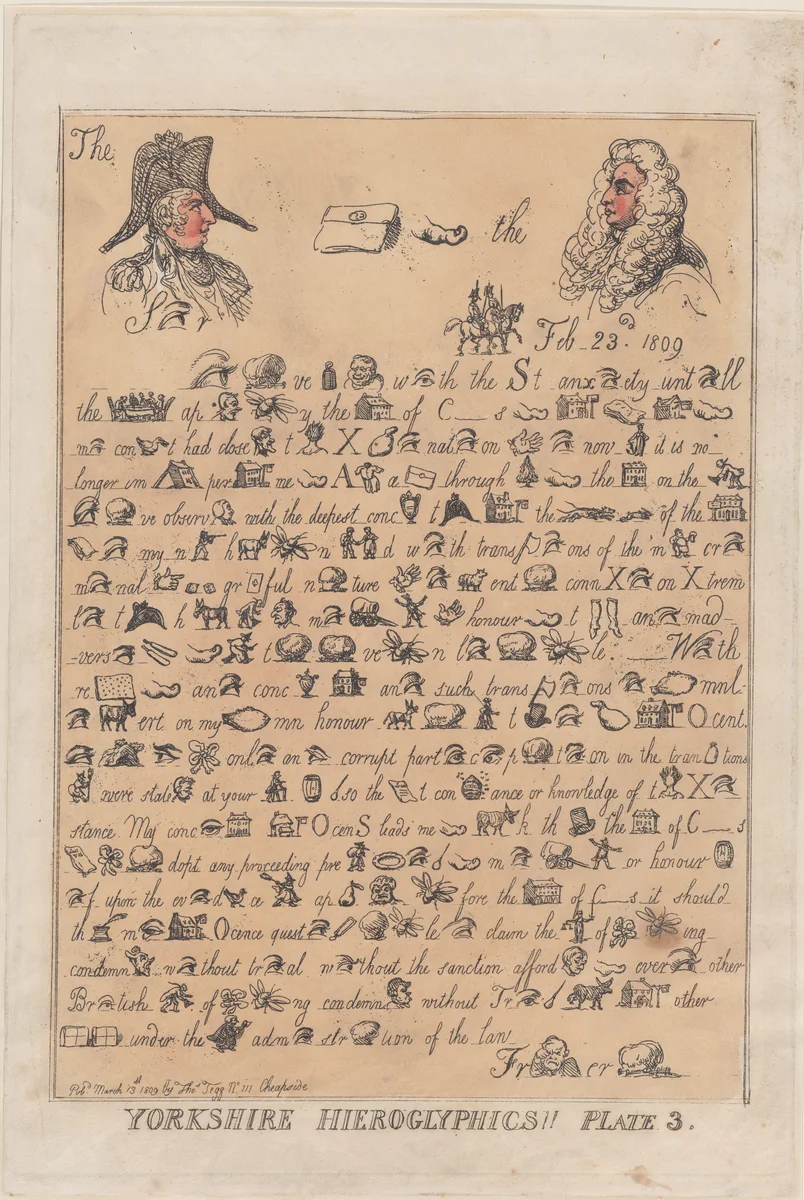 The
the
S r
Feb 23d. 1809
ve w th the St anx ety unt ll
the ap y the of C__s
m con t had close t X nat on now it is no
longer im per me A a through the on the
ve observ with the deepest conc t the of the
my n h n d w th trans ons of the m cr
m nal gr ful n ture ent conn X on Xtrem
t t h m honour t an mad-
-vers t ve n l le. __W th
re an conc an such trans ons mnl-
ert on my mn honour t O cent.
onl an corrupt part c p t on in the tran tions
were stab at your so the t con ance or knowledge of t X
stance. My conc O cenS leads me k th the of C__s
dopt any proceeding pre m or honour
f upon the ev d ce ap fore the of C__s it should
th m Ocence quest le claim the of ing
condemn w thout tr al w thout the sanction afford ever other
Br tish of ng condemn without Tr other
under the adm str tion of the law
Fr er
Pubd. March 13th 1809 by Thos. Tegg No 111 Cheapside
YORKSHIRE HIEROGLYPHICS!! PLATE 3.